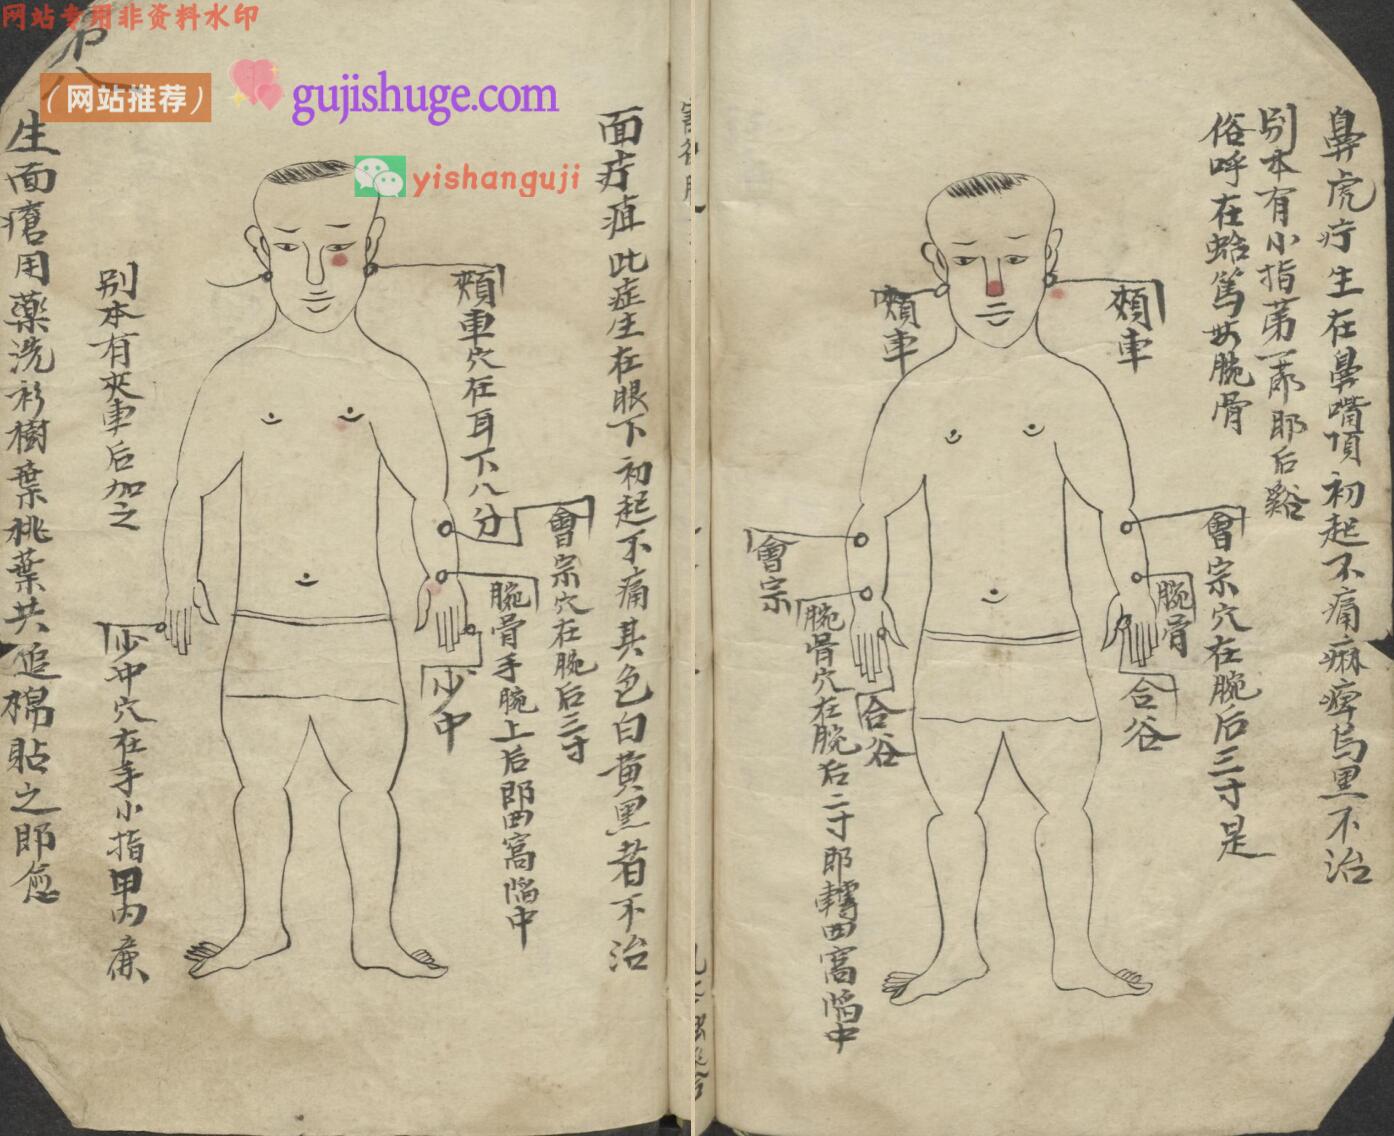 网站专用非资料水印
(网站推荐)
gujishuge.com
yishanguji
鼻虎疔生在鼻嘴頂初起不痛麻痺烏黑不治
别本有小指苐一節即后谿
俗呼在蛤篤女腕骨
頰車
頰車
會宗穴在腕后三寸是
腕骨
合谷
會宗
腕骨穴在腕后二寸即轉凹窩陷中
合谷
面疔疽此症生在眼下初起不痛其色白黄黑者不治
頰車穴在耳下八分
會宗穴在腕后三寸
腕骨手腕上后即凹窩陷中
少中
别本有夾車后加之
少冲穴在手小指甲内廉
生面瘡用藥洗衫樹葉桃葉共追棉貼之即愈